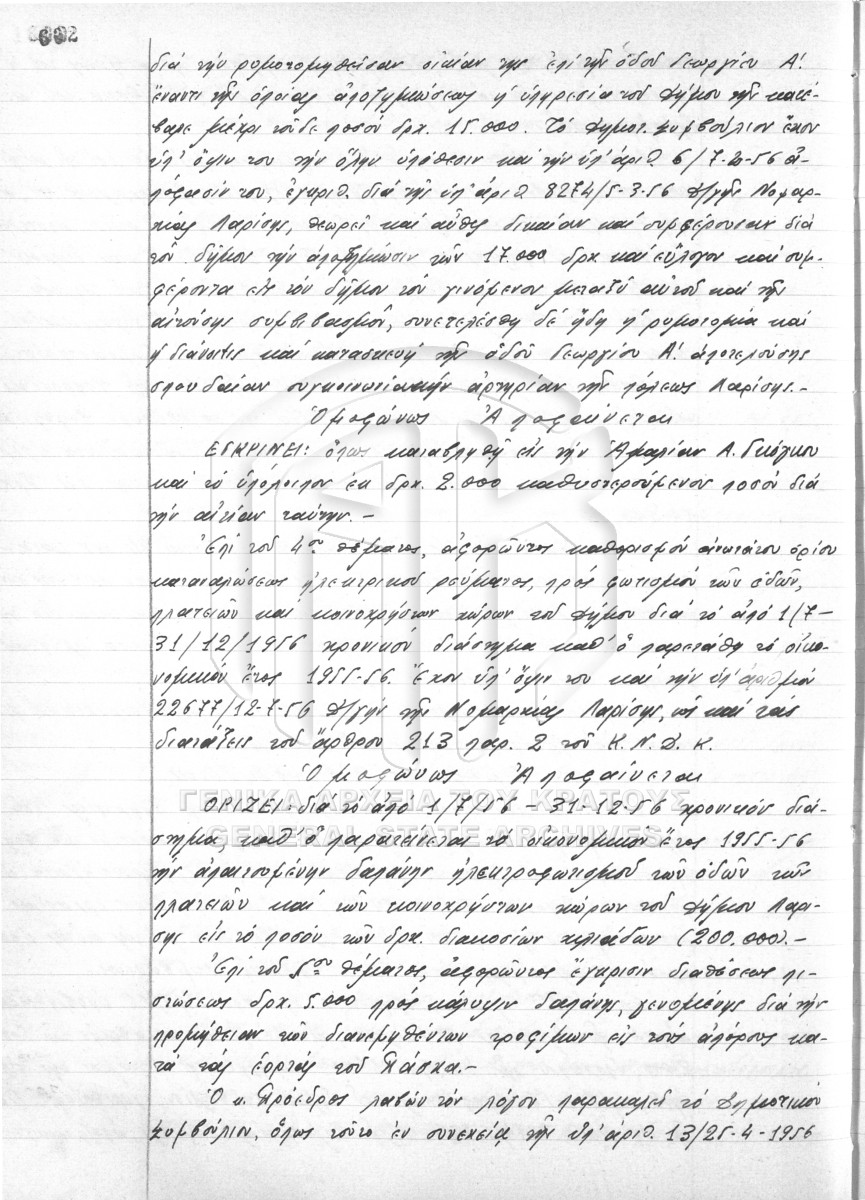 002
διά τήν ρυμοτομηθεῖσαν οἰκίαν της ἐπί τῆς ὁδοῦ Γεωργίου Α΄.
ἔναντι τῆς ὁποίας ἀποζημιώσεως ἡ ὑπηρεσία τοῦ Δήμου τῆς κατέ-
βαλε μέχρι τοῦδε ποσόν δρχ. 15.000. Τό Δημοτ. Συμβούλιον ἔχον
ὑπ' ὄψιν του τήν ὅλην ὑπόθεσιν καί τήν ὑπ' ἀριθ. 6/7-2-56 ἀ-
πόφασίν του, ἐγκριθ. διά τῆς ὑπ' ἀριθ. 8274/5-3-56 Δ/γῆς Νομαρ-
χίας Λαρίσης, θεωρεῖ καί αὖθις δικαίαν καί συμφέρουσαν διά
τόν δῆμον τήν ἀποζημίωσιν τῶν 17.000 δρχ. καί εὔλογον καί συμ-
φέροντα εἰς τόν δῆμον τόν γενόμενον μεταξύ αὐτοῦ καί τῆς
αἰτούσης συμβιβασμόν, συνετελέσθη δέ ἤδη ἡ ρυμοτομία καί
ἡ διάνοιξις καί κατασκευή τῆς ὁδοῦ Γεωργίου Α΄. ἀποτελούσης
σπουδαίαν συγκοινωνιακήν ἀρτηρίαν τῆς πόλεως Λαρίσης.-
Ὁμοφώνως Ἀποφαίνεται
ΕΓΚΡΙΝΕΙ: ὅπως καταβληθῇ εἰς τήν Ἀμαλίαν Α. Γκόγκου
καί τό ὑπόλοιπον ἐκ δρχ. 2.000 καθυστερούμενον ποσόν διά
τήν αἰτίαν ταύτην.-
Ἐπί τοῦ 4ου θέματος, ἀφορῶντος καθορισμόν ἀνωτάτου ὁρίου
καταναλώσεως ἠλεκτρικοῦ ρεύματος, πρός φωτισμόν τῶν ὁδῶν,
πλατειῶν καί κοινοχρήστων χώρων τοῦ Δήμου διά τό ἀπό 1/7-
31/12/1956 χρονικόν διάστημα καθ' ὅ παρετάθη τό οἰκο-
νομικόν ἔτος 1955-56. Ἔχον ὑπ' ὄψιν του καί τήν ὑπ' ἀριθμόν
22677/12-7-56 Δ/γήν τῆς Νομαρχίας Λαρίσης, ὡς καί τάς
διατάξεις τοῦ ἄρθρου 213 παρ. 2 τοῦ Κ.Ν.Δ.Κ.
Ὁμοφώνως Ἀποφαίνεται
ΓΕΝΙΚΑ ΑΡΧΕΙΑ ΤΟΥ ΚΡΑΤΟΥΣ
ΟΡΙΖΕΙ: διά τό ἀπό 1/7/56 - 31-12-56 χρονικόν διά-
GENERAL STATE ARCHIVES
στημα, καθ' ὅ παρατείνεται τό οἰκονομικόν ἔτος 1955-56
τήν ἀπαιτουμένην δαπάνην ἠλεκτροφωτισμοῦ τῶν ὁδῶν τῶν
πλατειῶν καί τῶν κοινοχρήστων χώρων τοῦ Δήμου Λαρί-
σης εἰς τό ποσόν τῶν δρχ. διακοσίων χιλιάδων (200.000).-
Ἐπί τοῦ 5ου θέματος, ἀφορῶντος ἔγκρισιν διαθέσεως πι-
στώσεως δρχ. 5.000 πρός κάλυψιν δαπάνης, γενομένης διά τήν
προμήθειαν τῶν διανεμηθέντων τροφίμων εἰς τούς ἀπόρους κα-
τά τάς ἑορτάς τοῦ Πάσχα.-
Ὁ κ. Πρόεδρος λαβών τόν λόγον παρακαλεῖ τό Δημοτικόν
Συμβούλιον, ὅπως τοῦτο ἐν συνεχείᾳ τῆς ὑπ' ἀριθ. 13/25-4-1956